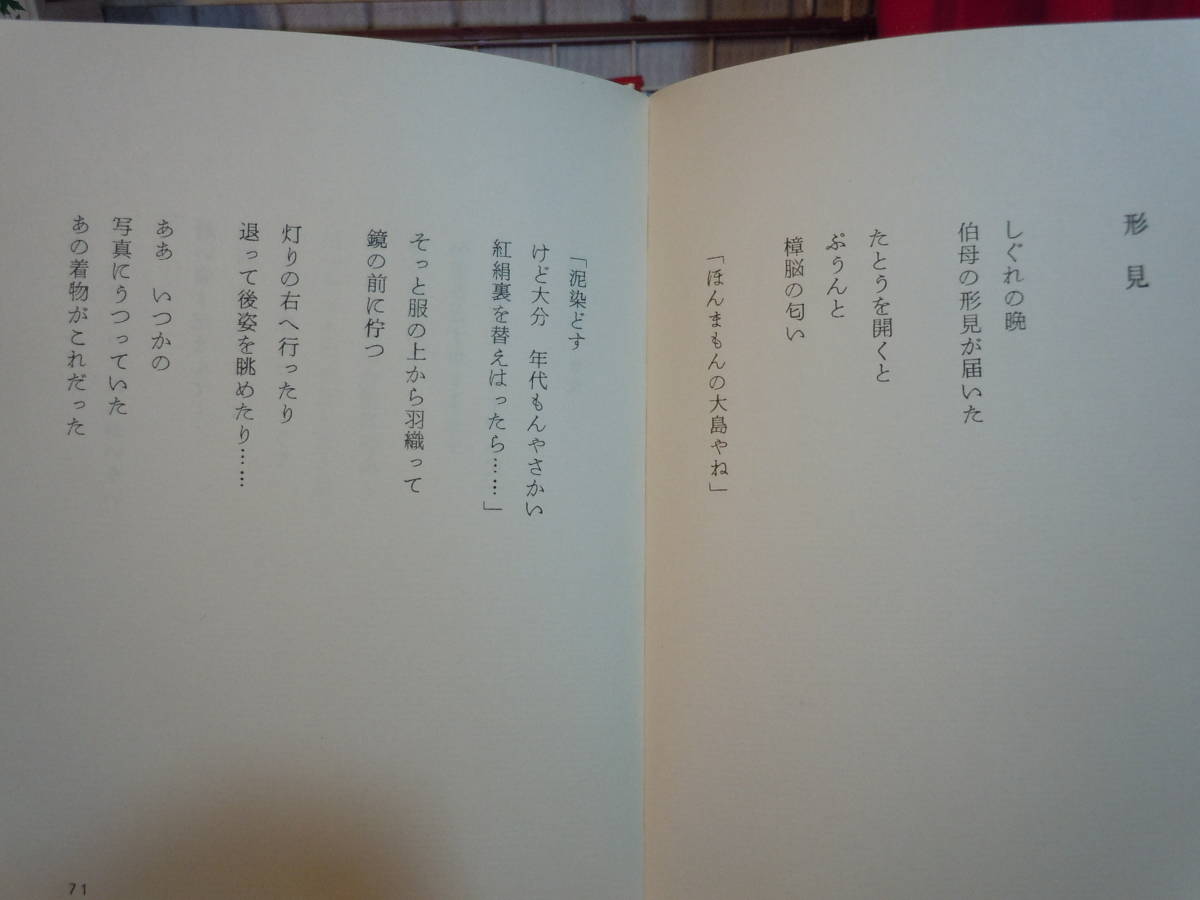 形見
しぐれの晩
伯母の形見が届いた
たとうを開くと
ぷうんと
樟脳の匂い
「ほんまもんの大島やね」
「泥染どす
けど大分　年代もんやさかい
紅絹裏を替えはったら……」
そっと服の上から羽織って
鏡の前に佇つ
灯りの右へ行ったり
退って後姿を眺めたり……
ああ　いつかの
写真にうつっていた
あの着物がこれだった
71